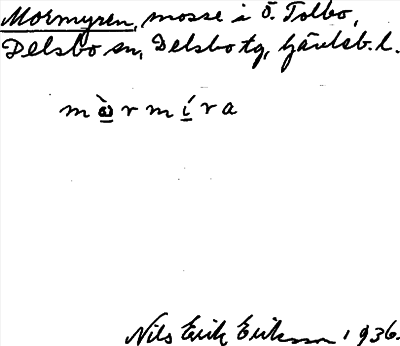 Mormyren, mosse i Ö. Tolbo,
Delsbo sn, Delsbo tg, Gävlsb. l.
m r m í r a
Nils Erik Eriksson, 1936.